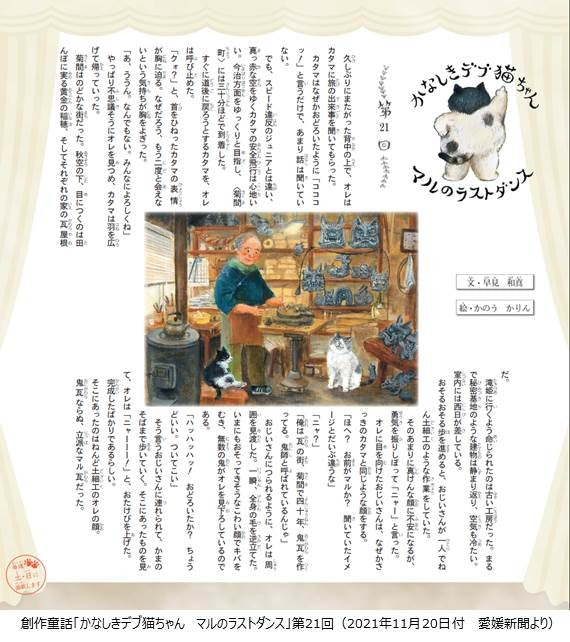 かなしきデブ猫ちゃん
第21回
マルのラストダンス
文・早見 和真
絵・かのう かりん
久しぶりにまたがった背中の上で、オレは
カタマに旅の出来事を聞いてもらった。
カタマはなぜかおどろいたように「コココ
ッ!」と言うだけで、あまり話は聞いてい
ない。
でも、スピード違反のジュニアとは違い、
真っ赤な空をゆくカタマの安全飛行は心地い
い。今治方面をゆっくりと目指し、〈菊間
町〉には三十分ほどで到着した。
すぐに道後に戻ろうとするカタマを、オレ
は呼び止めた。
「クォ?」と、首をひねったカタマの表情
が胸に迫る。なぜだろう、もう二度と会えな
いという気持ちが胸をよぎった。
「あ、ううん。なんでもない。みんなによろしくね」
やっぱり不思議そうにオレを見つめ、カタマは羽を広
げて帰っていった。
菊間はのどかな町だった。秋空の下、目につくのは田
んぼに実る黄金の稲穂。そしてそれぞれの家の瓦屋根
だ。
滝姫に行くよう命じられたのは古い工房だった。まる
で秘密基地のような建物は静まり返り、空気も冷たい。
室内には西日が差している。
おそるおそる歩を進めると、おじいさんが一人でね
ん土細工のような作業をしていた。
そのあまりに真けんな顔に不安になるが、
勇気を振りしぼって「ニャー」と言った。
オレに目を向けたおじいさんは、なぜかさ
っきのカタマと同じような顔をする。
「ほへ? お前がマルか? 聞いていたイメ
ージとだいぶ違うな」
「ニャ?」
「俺は瓦の街、菊間で四十年、鬼瓦を作
ってる。鬼師と呼ばれているんじゃ」
おじいさんにつられるように、オレは周
囲を見渡した。一瞬、全身の毛を逆立てた。
いまにもおそってきそうなこわい顔でキバを
むき、無数の鬼がオレを見下ろしているので
ある。
「ハッハッハッ! おどろいたか? ちょう
どいい。ついてこい」
そう言うおじいさんに連れられて、かまの
そばまで歩いていく。そこにあったものを見
て、オレは「ニャーーーー!」と、おたけびを上げた。
完成したばかりであるらしい。
そこにあったのはねんど土細工のオレの顔。
鬼瓦ならぬ、立派なマル瓦だった。
毎週
土・日に
掲載します
創作童話「かなしきデブ猫ちゃん マルのラストダンス」第21回(2021年11月20日付 愛媛新聞より)